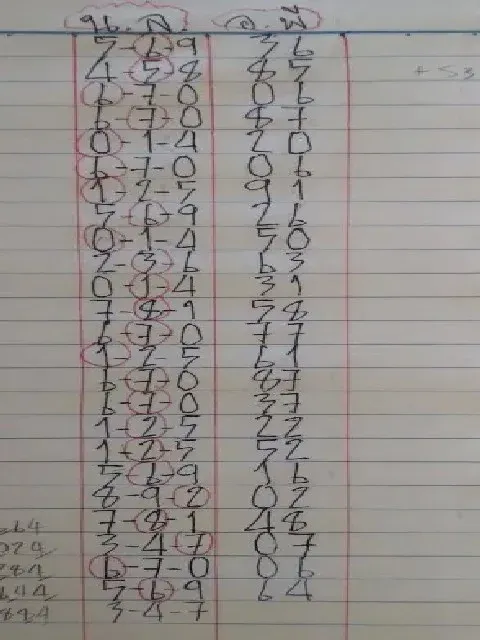 น. ส. จ. พี
5-6-9 36
4-5-8 85
+53
6-7-0 06
6-7-0 87
0-1-4 20
6-7-0 06
1-2-5 91
5-6-9 26
0-1-4 50
2-3-6 63
0-1-4 31
7-8-1 58
6-7-0 77
1-2-5 61
6-7-0 87
6-7-0 37
1-2-5 22
1-2-5 52
5-6-9 16
8-9-2 02
7-8-1 48
3-4-7 07
6-7-0 06
5-6-9 64
3-4-7